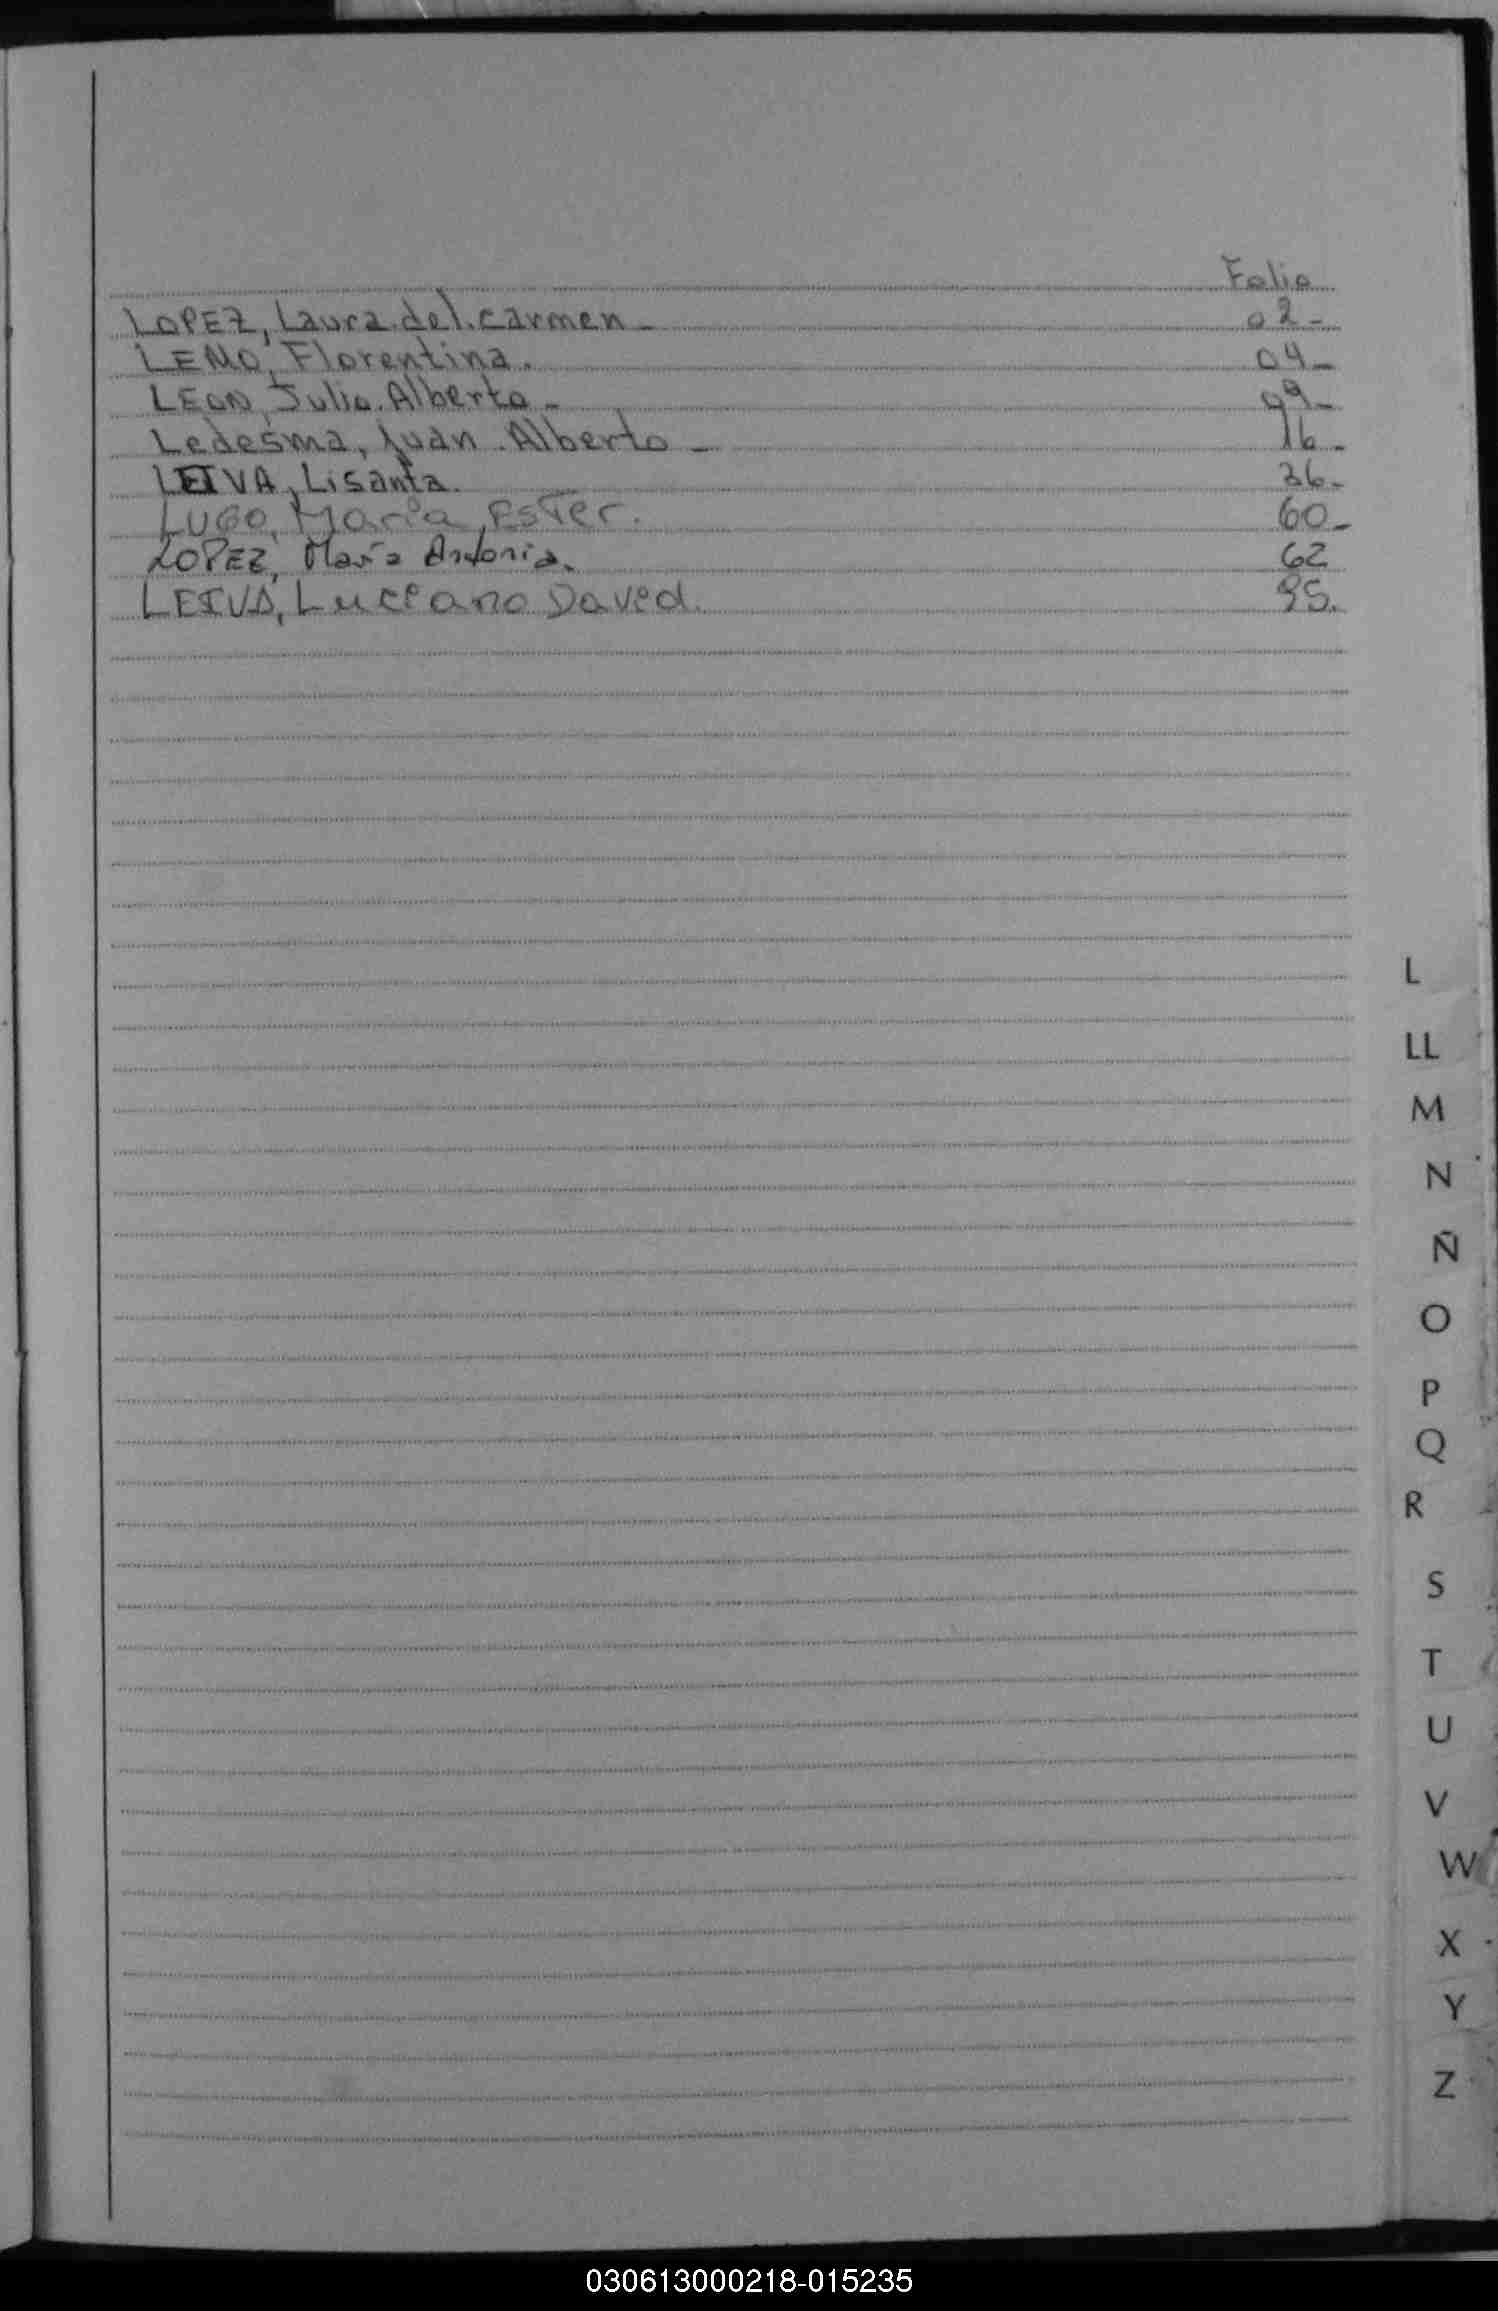 Folio
LOPEZ, Laura del Carmen - 02-
LEMO, Florentina. 04-
LEON, Julio Alberto - 09-
Ledesma, Juan Alberto - 16-
LEIVA, Lisanta. 36-
LUGO, María Ester. 60-
LOPEZ, María Antonia. 62
LEIVA, Luciano David. 95.
L
LL
M
N
Ñ
O
P
Q
R
S
T
U
V
W
X
Y
Z
030613000218-015235